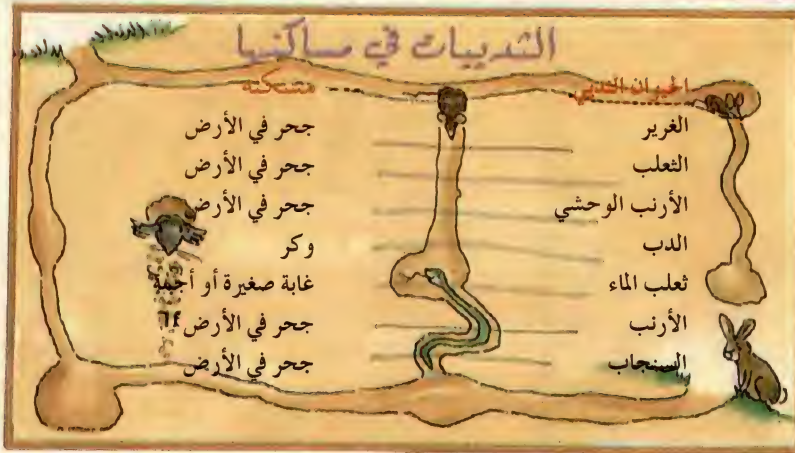 الثدييات في مساكنها
الحيوان الثديي مسكنه
الغرير جحر في الأرض
الثعلب جحر في الأرض
الأرنب الوحشي جحر في الأرض
الدب وكر
ثعلب الماء غابة صغيرة أو أجمة
الأرنب جحر في الأرض
السنجاب جحر في الأرض